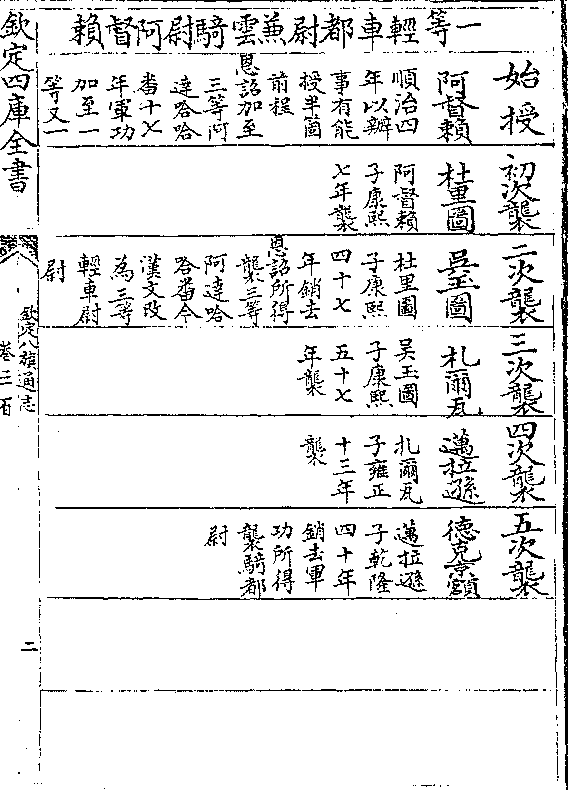 一等輕車都尉兼雲騎尉阿督賴
始授
阿督賴
順治四
年以辦
事有能
授半箇
前程
恩詔加至
三等阿
達哈哈
番十七
年軍功
加至一
等又一
初次襲
杜里圖
阿督賴
子康熙
七年襲
二次襲
吳玉圖
杜里圖
子康熙
四十七
年銷去
恩詔所得
襲三等
阿達哈
哈番今
漢文改
為三等
輕車都
尉
三次襲
札爾瓦
吳玉圖
子康熙
五十七
年襲
四次襲
邁拉遜
札爾瓦
子雍正
十三年
襲
五次襲
德克京額
邁拉遜
子乾隆
四十年
銷去軍
功所得
襲騎都
尉
欽定四庫全書
欽定八旗通志
卷三百
二